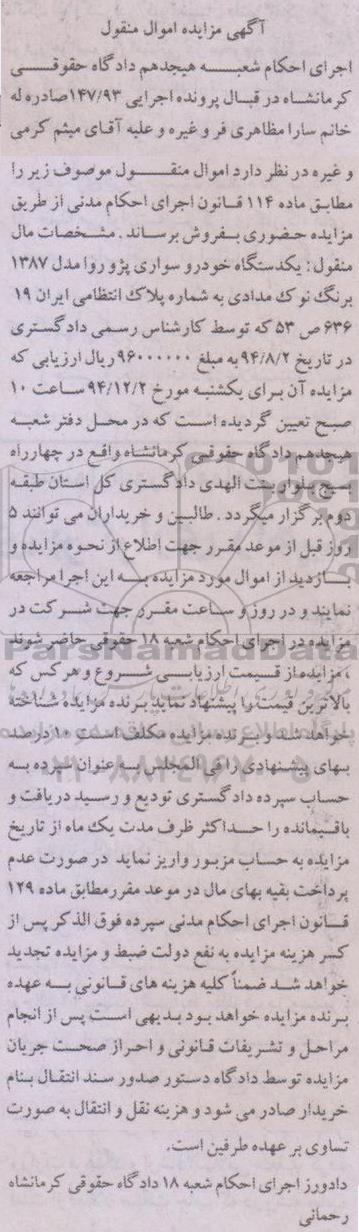 آگهی مزایده اموال منقول
اجرای احکام شعبه هیجدهم دادگاه حقوقی
کرمانشاه در قبال پرونده اجرایی ۱۴۷/۹۳ صادره له
خانم سارا مظاهری فر و غیره و علیه آقای میثم کرمی
و غیره در نظر دارد اموال منقول موصوف زیر را
مطابق ماده ۱۱۴ قانون اجرای احکام مدنی از طریق
مزایده حضوری بفروش برساند. مشخصات مال
منقول: یکدستگاه خودرو سواری پژو روا مدل ۱۳۸۷
برنگ نوک مدادی به شماره پلاک انتظامی ایران ۱۹
۶۳۶ ص ۵۳ که توسط کارشناس رسمی دادگستری
در تاریخ ۹۴/۸/۲ به مبلغ ۹۶۰۰۰۰۰۰ ریال ارزیابی که
مزایده آن برای یکشنبه مورخ ۹۴/۱۲/۲ ساعت ۱۰
صبح تعیین گردیده است که در محل دفتر شعبه
هیجدهم دادگاه حقوقی کرمانشاه واقع در چهارراه
بسیج بلوار بنت الهدی دادگستری کل استان طبقه
دوم برگزار میگردد. طالبین و خریداران می توانند ۵
روز قبل از موعد مقرر جهت اطلاع از نحوه مزایده و
بازدید از اموال مورد مزایده به این اجرا مراجعه
نمایند و در روز و ساعت مقرر جهت شرکت در
مزایده در اجرای احکام شعبه ۱۸ حقوقی حاضر شوند
، مزایده از قیمت ارزیابی شروع و هر کس که
بالاترین قیمت را پیشنهاد نماید برنده مزایده شناخته
خواهد شد و برنده مزایده مکلف است ۱۰ درصد
بهای پیشنهادی را فی المجلس به عنوان سپرده به
حساب سپرده دادگستری تودیع و رسید دریافت و
باقیمانده را حداکثر ظرف مدت یک ماه از تاریخ
مزایده به حساب مزبور واریز نماید در صورت عدم
پرداخت بقیه بهای مال در موعد مقرر مطابق ماده ۱۲۹
قانون اجرای احکام مدنی سپرده فوق الذکر پس از
کسر هزینه مزایده به نفع دولت ضبط و مزایده تجدید
خواهد شد ضمناً کلیه هزینه های قانونی به عهده
برنده مزایده خواهد بود بدیهی است پس از انجام
مراحل و تشریفات قانونی و احراز صحت جریان
مزایده توسط دادگاه دستور صدور سند انتقال بنام
خریدار صادر می شود و هزینه نقل و انتقال به صورت
تساوی بر عهده طرفین است.
دادورز اجرای احکام شعبه ۱۸ دادگاه حقوقی کرمانشاه
رحمانی
ParsNamadData